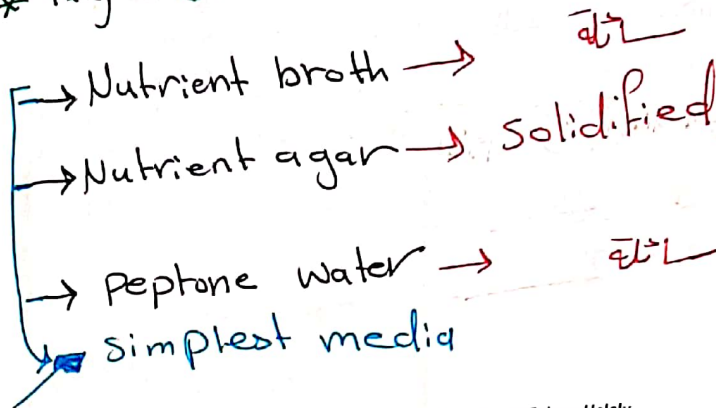 → Nutrient broth → سائل
→ Nutrient agar → solidified
→ peptone water → سائل
simplest media